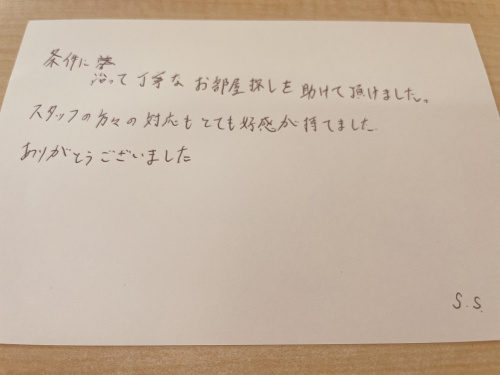 条件に
沿って丁寧なお部屋探しを助けて頂けました。
スタッフの方々の対応もとても好感が持てました
ありがとうございました
S.S.